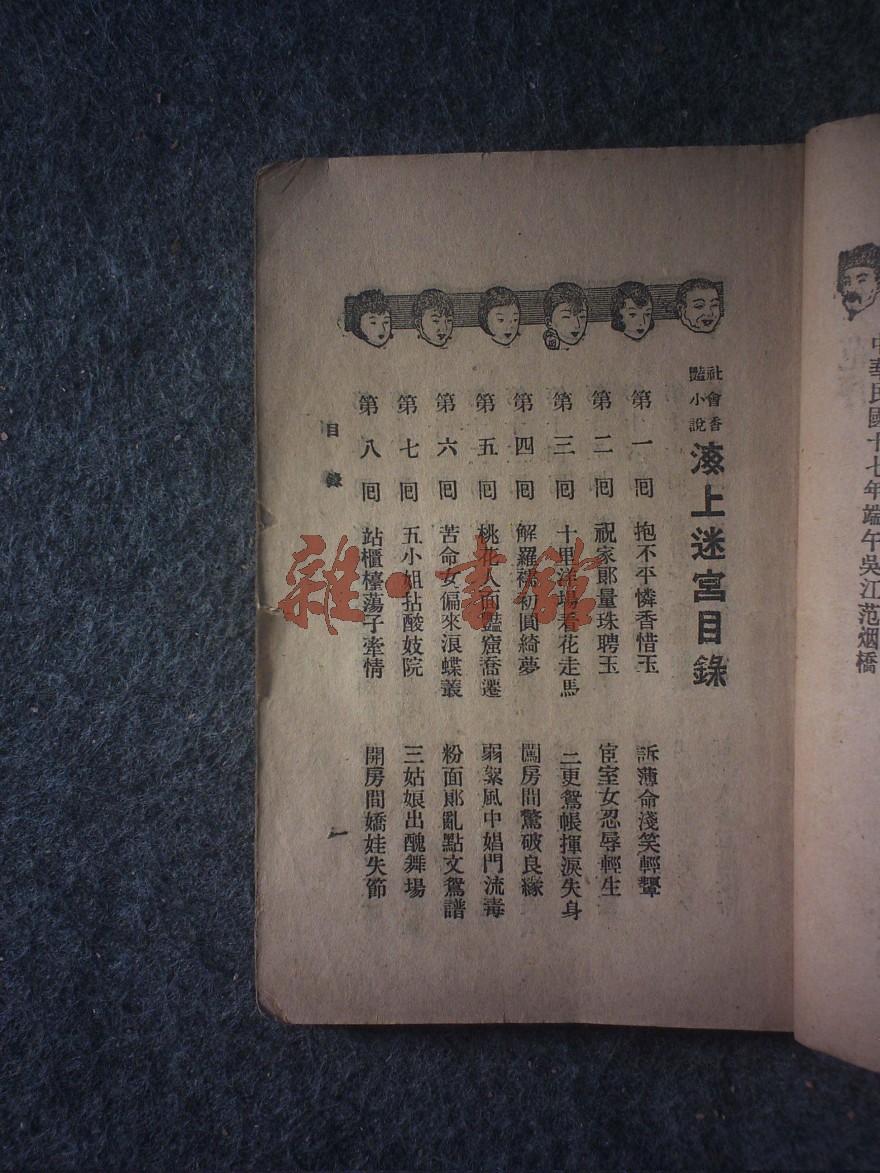 中華民國十七年端午吳江范烟橋
社會香豔小說
海上迷宮目錄
第一囘 抱不平憐香惜玉 訴薄命淺笑輕顰
第二囘 祝家郞量珠聘玉 宦室女忍辱輕生
第三囘 十里洋場看花走馬 二更鴛帳揮淚失身
第四囘 解羅襦初圓綺夢 闖房間驚破良緣
第五囘 桃花人面豔窟喬遷 弱絮風中娼門流毒
第六囘 苦命女偏來浪蝶叢 粉面郞亂點文鴛譜
第七囘 五小姐拈酸妓院 三姑娘出醜舞場
第八囘 站櫃檯蕩子牽情 開房間嬌娃失節
目錄
一
雜·書館